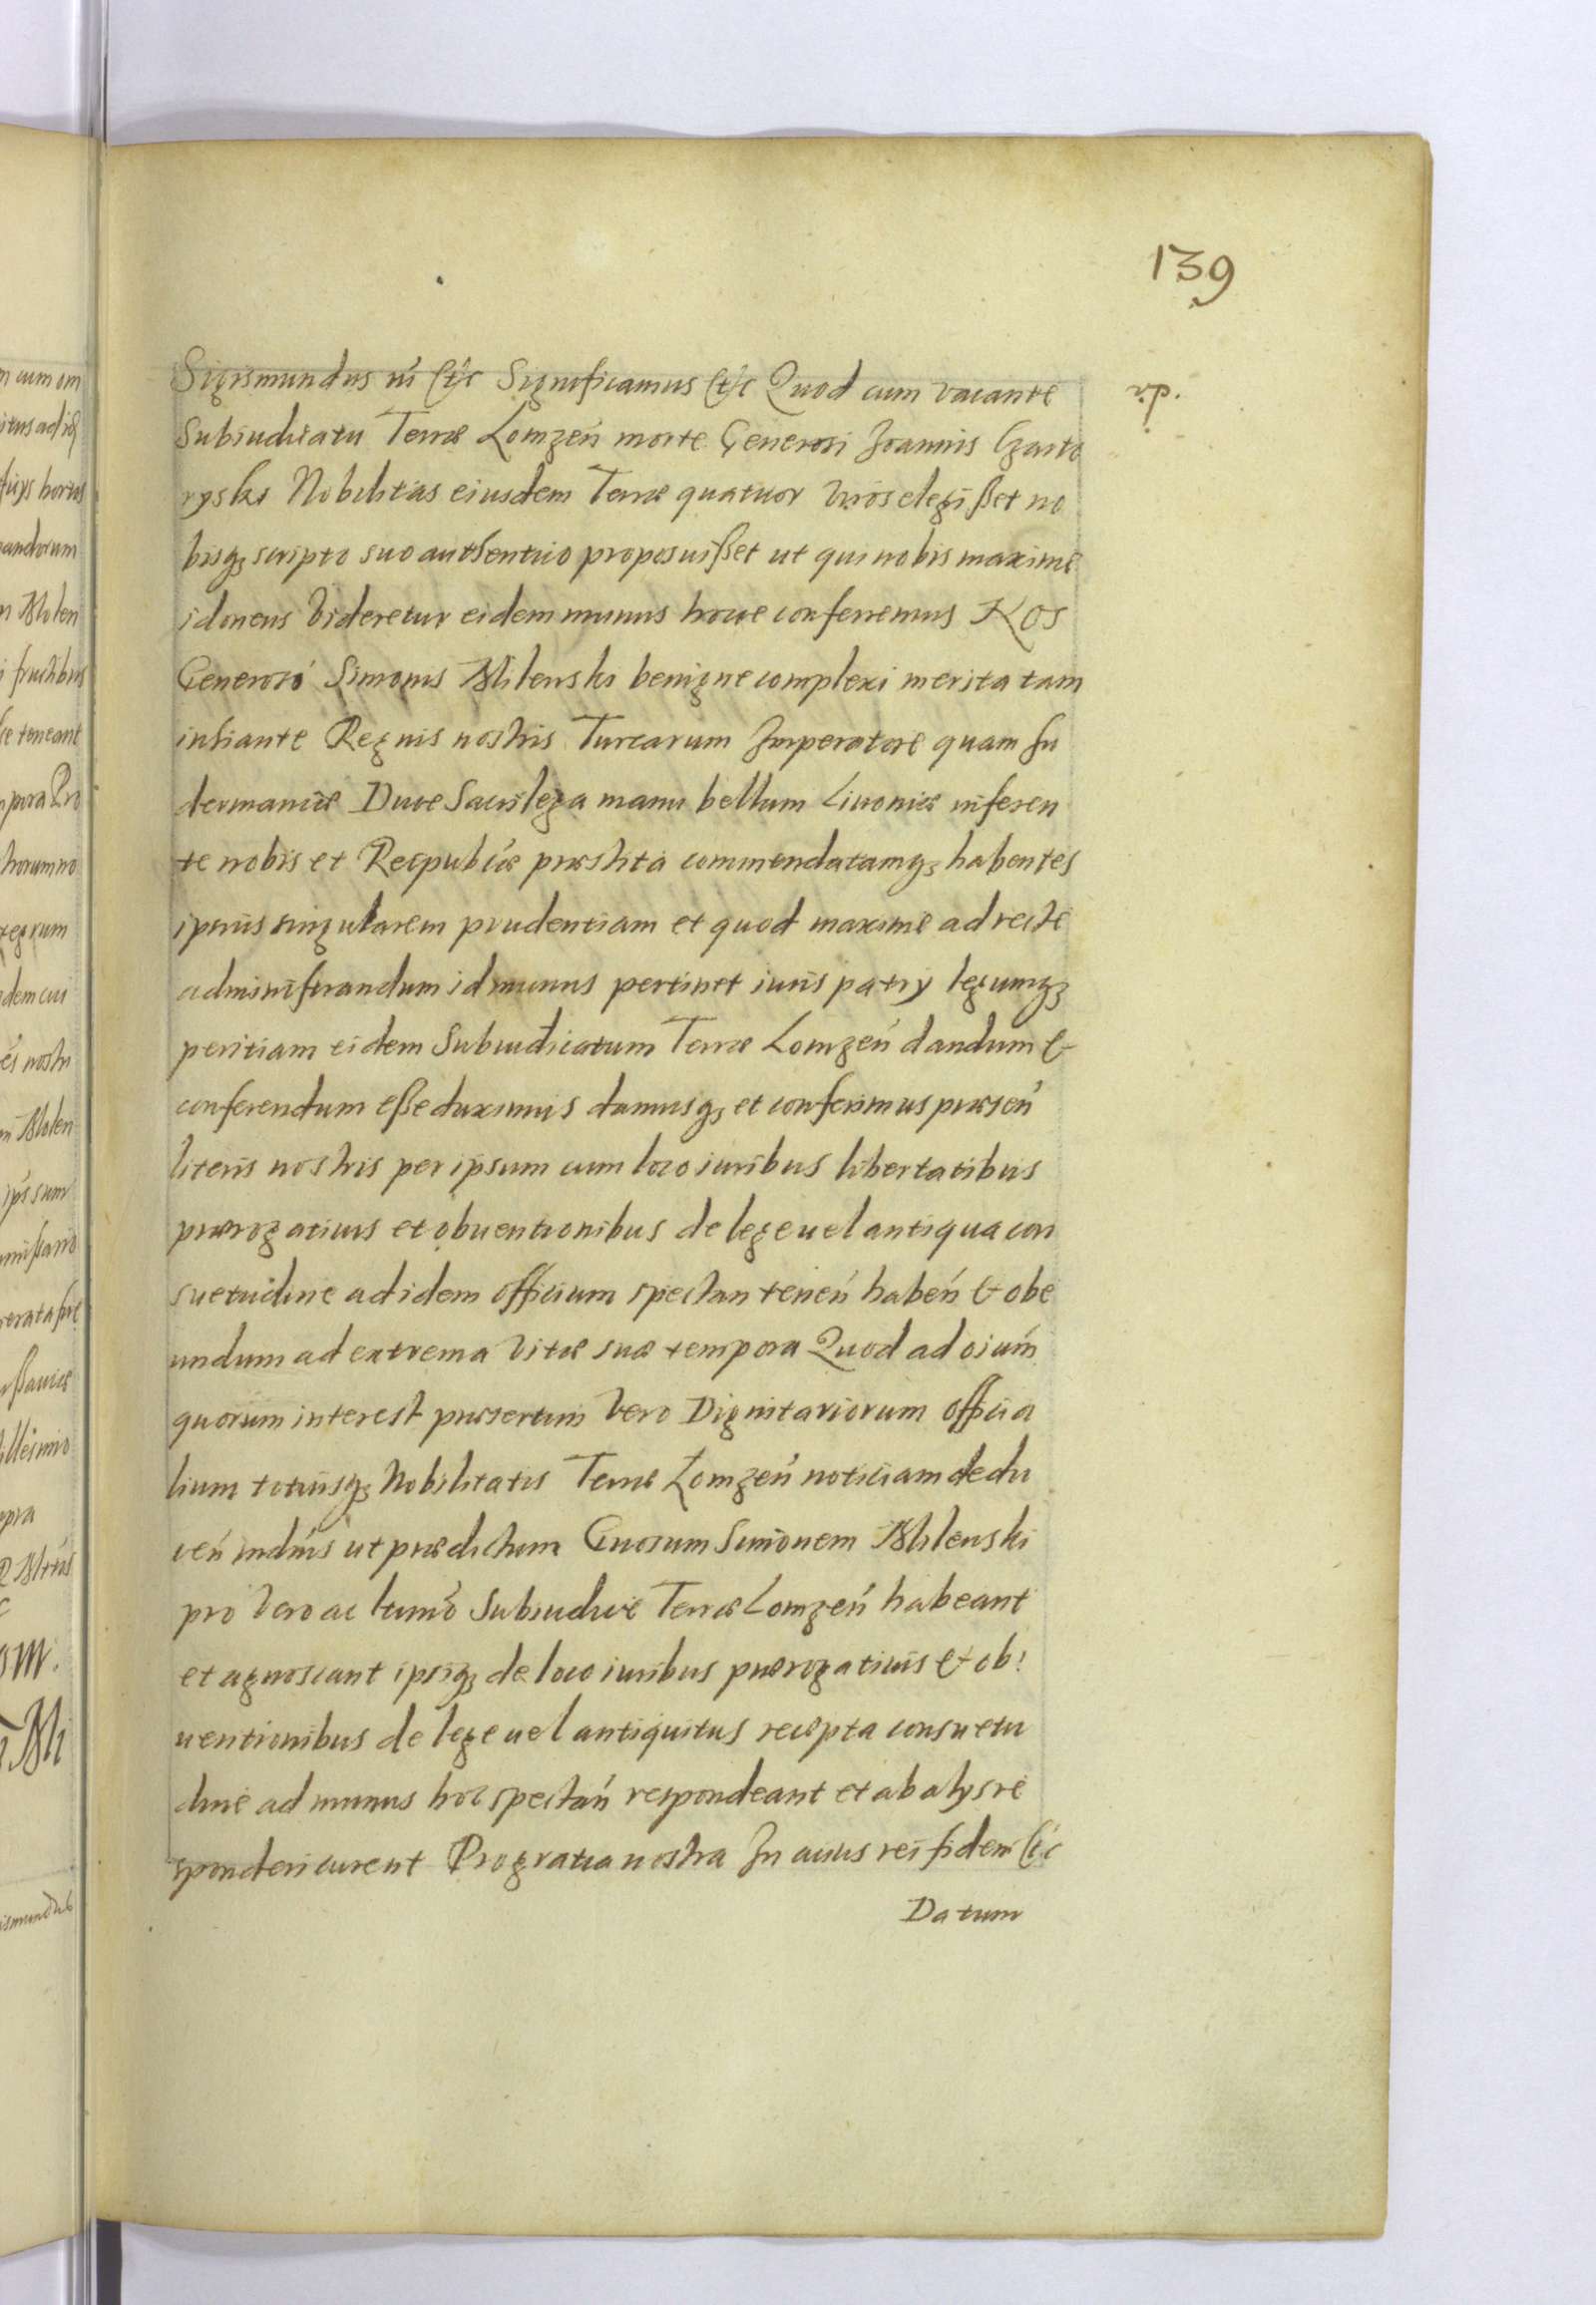 139
Sigismundus III Etc Significamus Etc Quod cum vacante
Subiudicatu Terræ Lomzeń morte Generosi Joannis Czarto
ryski Nobilitas eiusdem Terræ quatuor viros elegißet no
bisq3 scripto suo authentico proposuißet ut qui nobis maxime
idoneus videretur eidem munus hocce conferremus Nos
Generosi Simonis Milenski benigne complexi merita tam
inhiante Regnis nostris Turcarum Imperatore quam Su
dermaniæ Duce Sacrilega manu bellum Livoniæ inferen
te nobis et Reipublicæ præstita commendatamq3 habentes
ipsius singularem prudentiam et quod maxime ad recte
administrandum id munus pertinet iuris patrij legumq3
peritiam eidem Subiudicatum Terræ Lomzeń dandum &
conferendum eße duximus damusq3 et conferimus præseń
literis nostris per ipsum cum loco iuribus libertatibus
prærogativis et obuentionibus de lege uel antiqua con
suetudine ad idem officium spectan teneń habeń & obe
undum ad extrema vitæ suæ tempora Quod ad oium
quorum interest præsertim vero Dignitariorum officia
lium totiusq3 Nobilitatis Terræ Lomzeń noticiam dedu
ceń mdmus ut prædictum Gnosum Simonem Milenski
pro vero ac ltimo Subiudice Terræ Lomzeń habeant
et agnoscant ipsiq3 de loco iuribus prærogativis & ob
uentionibus de lege uel antiquitus recepta consuetu
dine ad munus hoc spectań respondeant et ab alijs re
sponderi curent Pro gratia nostra In cuius rei fidem Etc
Datum